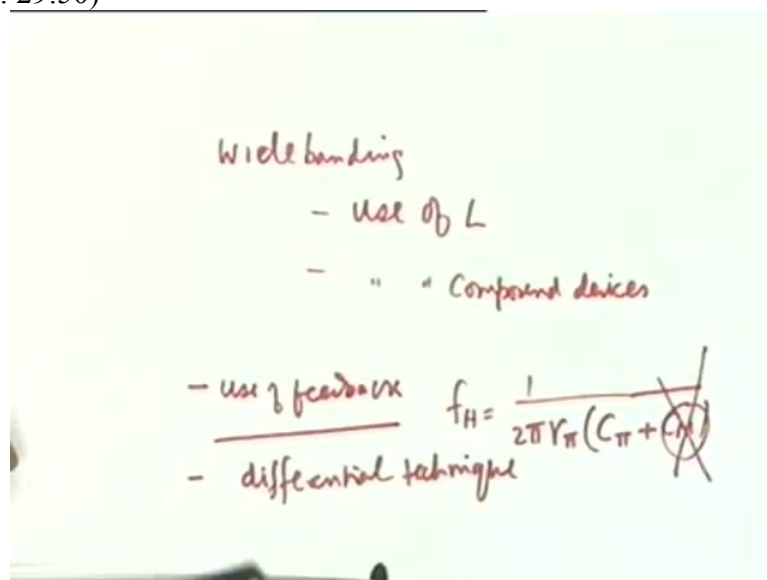 : 29:50)
Widebanding
- use of L
- " " Compound devices
- use of feedback f_H = 1 / 2π r_π (C_π + C_M)
- differential technique